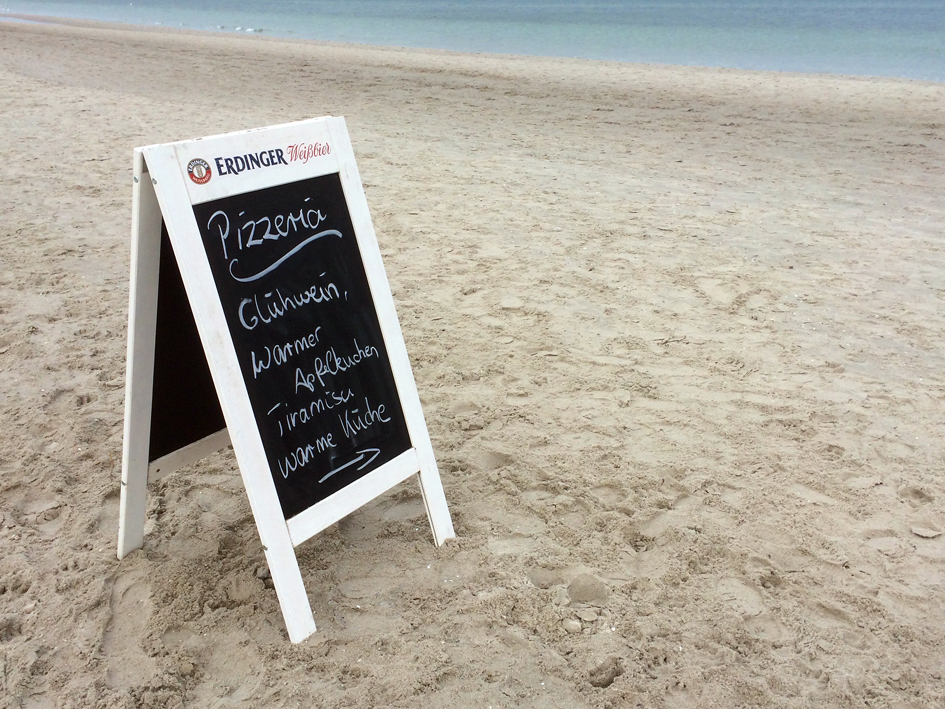 ERDINGER Weißbier
Pizzeria
Glühwein,
Warmer
Apfelkuchen
Tiramisu
Warme Küche